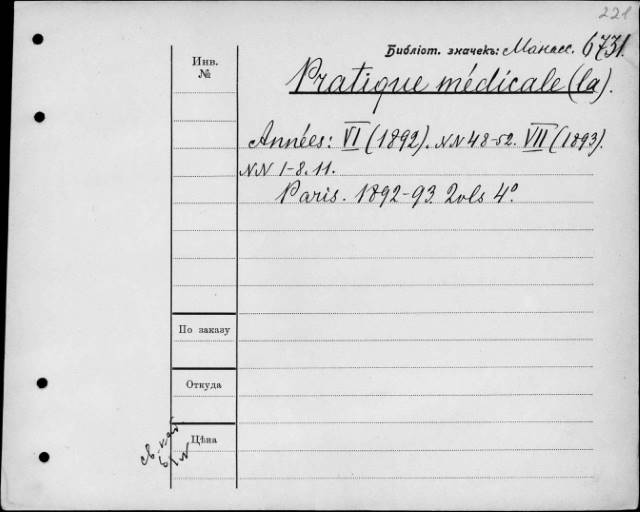 221
Библіот. значекъ: Манасс. 6731.
Инв. №
Pratique médicale (la).
Années: VI (1892). NN 48-52. VII (1893).
NN 1-8. 11.
Paris. 1892-93. 2 vls 4º.
По заказу
Откуда
Цѣна